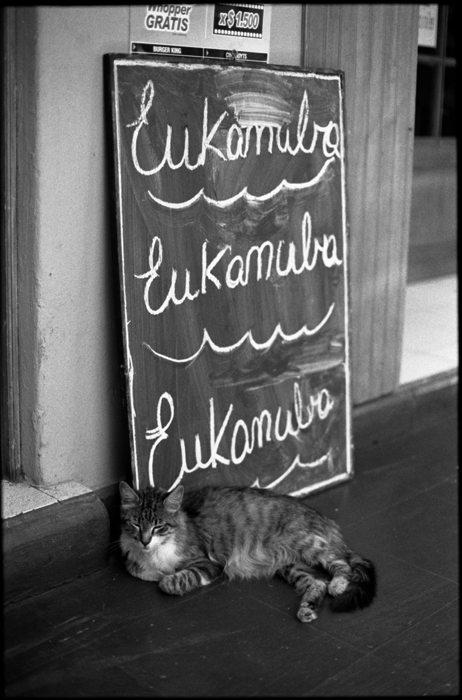 Whopper
GRATIS
x $ 1.500
BURGER KING
Eukanuba
Eukanuba
Eukanuba